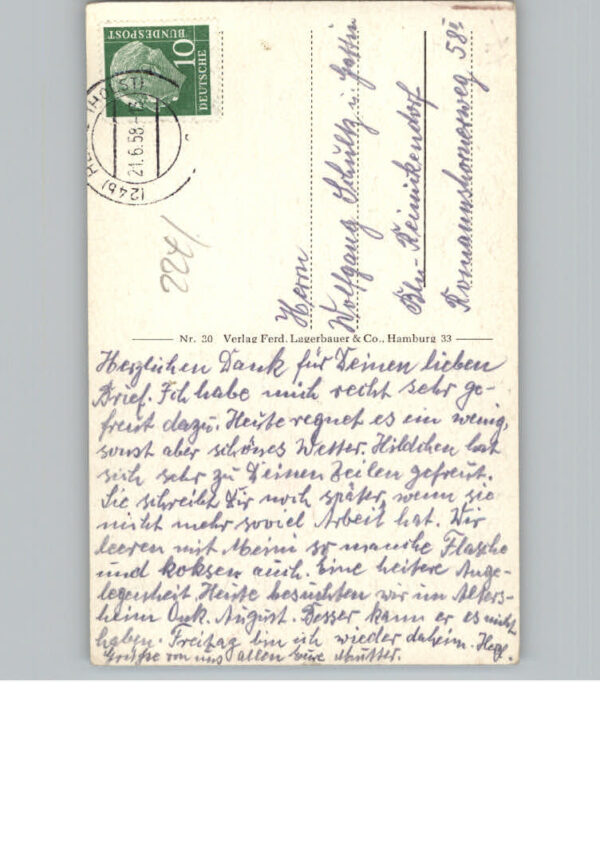 DEUTSCHE
BUNDESPOST
10
(24b) (HOLST)
21.6.58
224/
Herrn
Wolfgang Schultz u. Gattin
Bln-Reinickendorf
Romannshornerweg 58
Nr. 30 Verlag Ferd. Lagerbauer & Co., Hamburg 33
Herzlichen Dank für Deinen lieben
Brief. Ich habe mich recht sehr ge-
freut dazu. Heute regnet es ein wenig,
sonst aber schönes Wetter. Hildchen hat
sich sehr zu Deinen Zeilen gefreut.
Sie schreibt Dir noch später, wenn sie
nicht mehr soviel Arbeit hat. Wir
leeren mit Meini so manche Flasche
und koksen auch. Eine heitere Ange-
legenheit. Heute besuchten wir im Alters-
heim Onk. August. Besser kann er es nicht
haben. Freitag bin ich wieder daheim. Herzl.
Grüße von uns allen Eure Mutter.